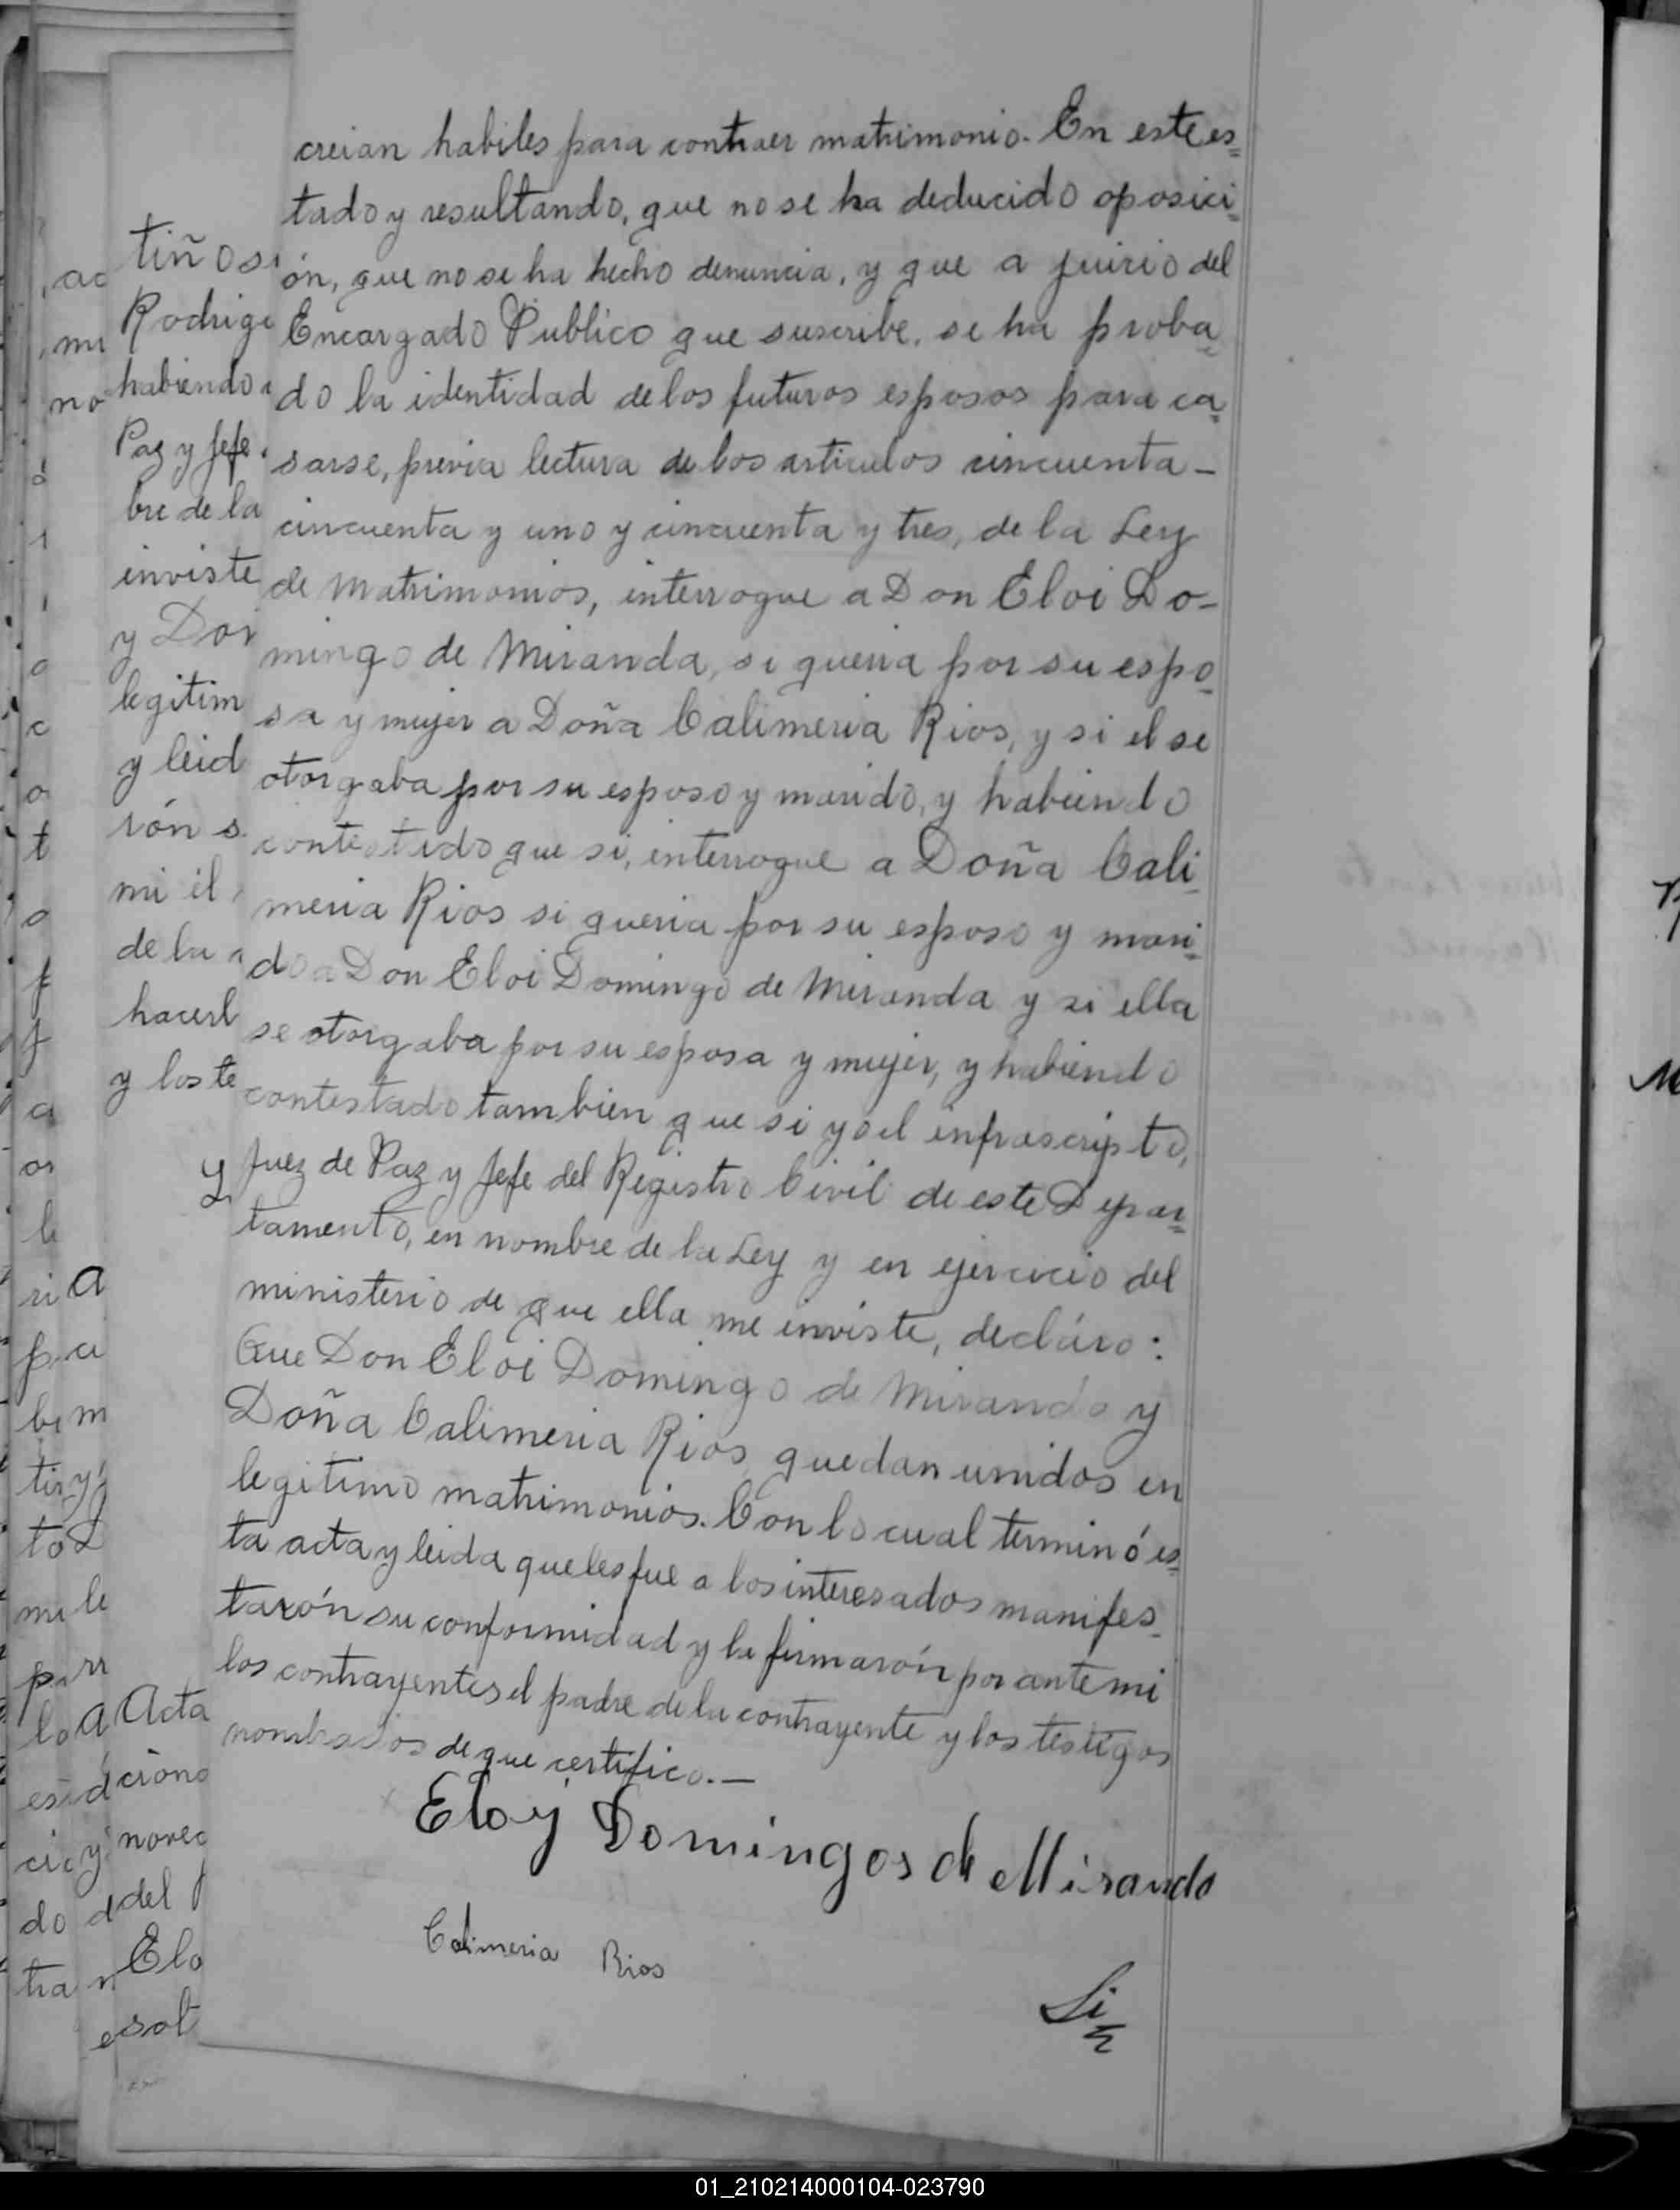 creian habiles para contraer matrimonio. En este es=
tado y resultando, que no se ha deducido oposici=
ón, que no se ha hecho denuncia, y que a juicio del
Encargado Publico que suscribe, se ha proba=
do la identidad de los futuros esposos para ca=
sarse, previa lectura de los articulos cincuenta-
cincuenta y uno y cincuenta y tres, de la Ley
de Matrimonios, interrogue a Don Eloi Do-
mingo de Miranda, si queria por su espo=
sa y mujer a Doña Calimeria Rios, y si el se
otorgaba por su esposo y marido, y habiendo
contestado que si, interrogue a Doña Cali=
meria Rios si queria por su esposo y mari=
do a Don Eloi Domingo de Miranda y si ella
se otorgaba por su esposa y mujer, y habiendo
contestado tambien que si yo el infrascripto,
Juez de Paz y Jefe del Registro Civil de este Depar=
tamento, en nombre de la Ley y en ejercicio del
ministerio de que ella me inviste, decláro:
Que Don Eloi Domingo de Miranda y
Doña Calimeria Rios, quedan unidos en
legitimo matrimonios. Con lo cual terminó es=
ta acta y leida que les fue a los interesados manifes-
tarón su conformidad y la firmarón por ante mi
los contrayentes el padre de la contrayente y los testigos
nombrados de que certifico.—
Eloy Domingos de Miranda
Calimeria Rios
tiños
Rodrig
habiendo
Paz y Jefe
bre de la
inviste
y Don
legitim
y leid
rón s
mi el
de la
hacerl
y los te
Acta
ciono
novec
del
Elo
sol
01_210214000104-023790